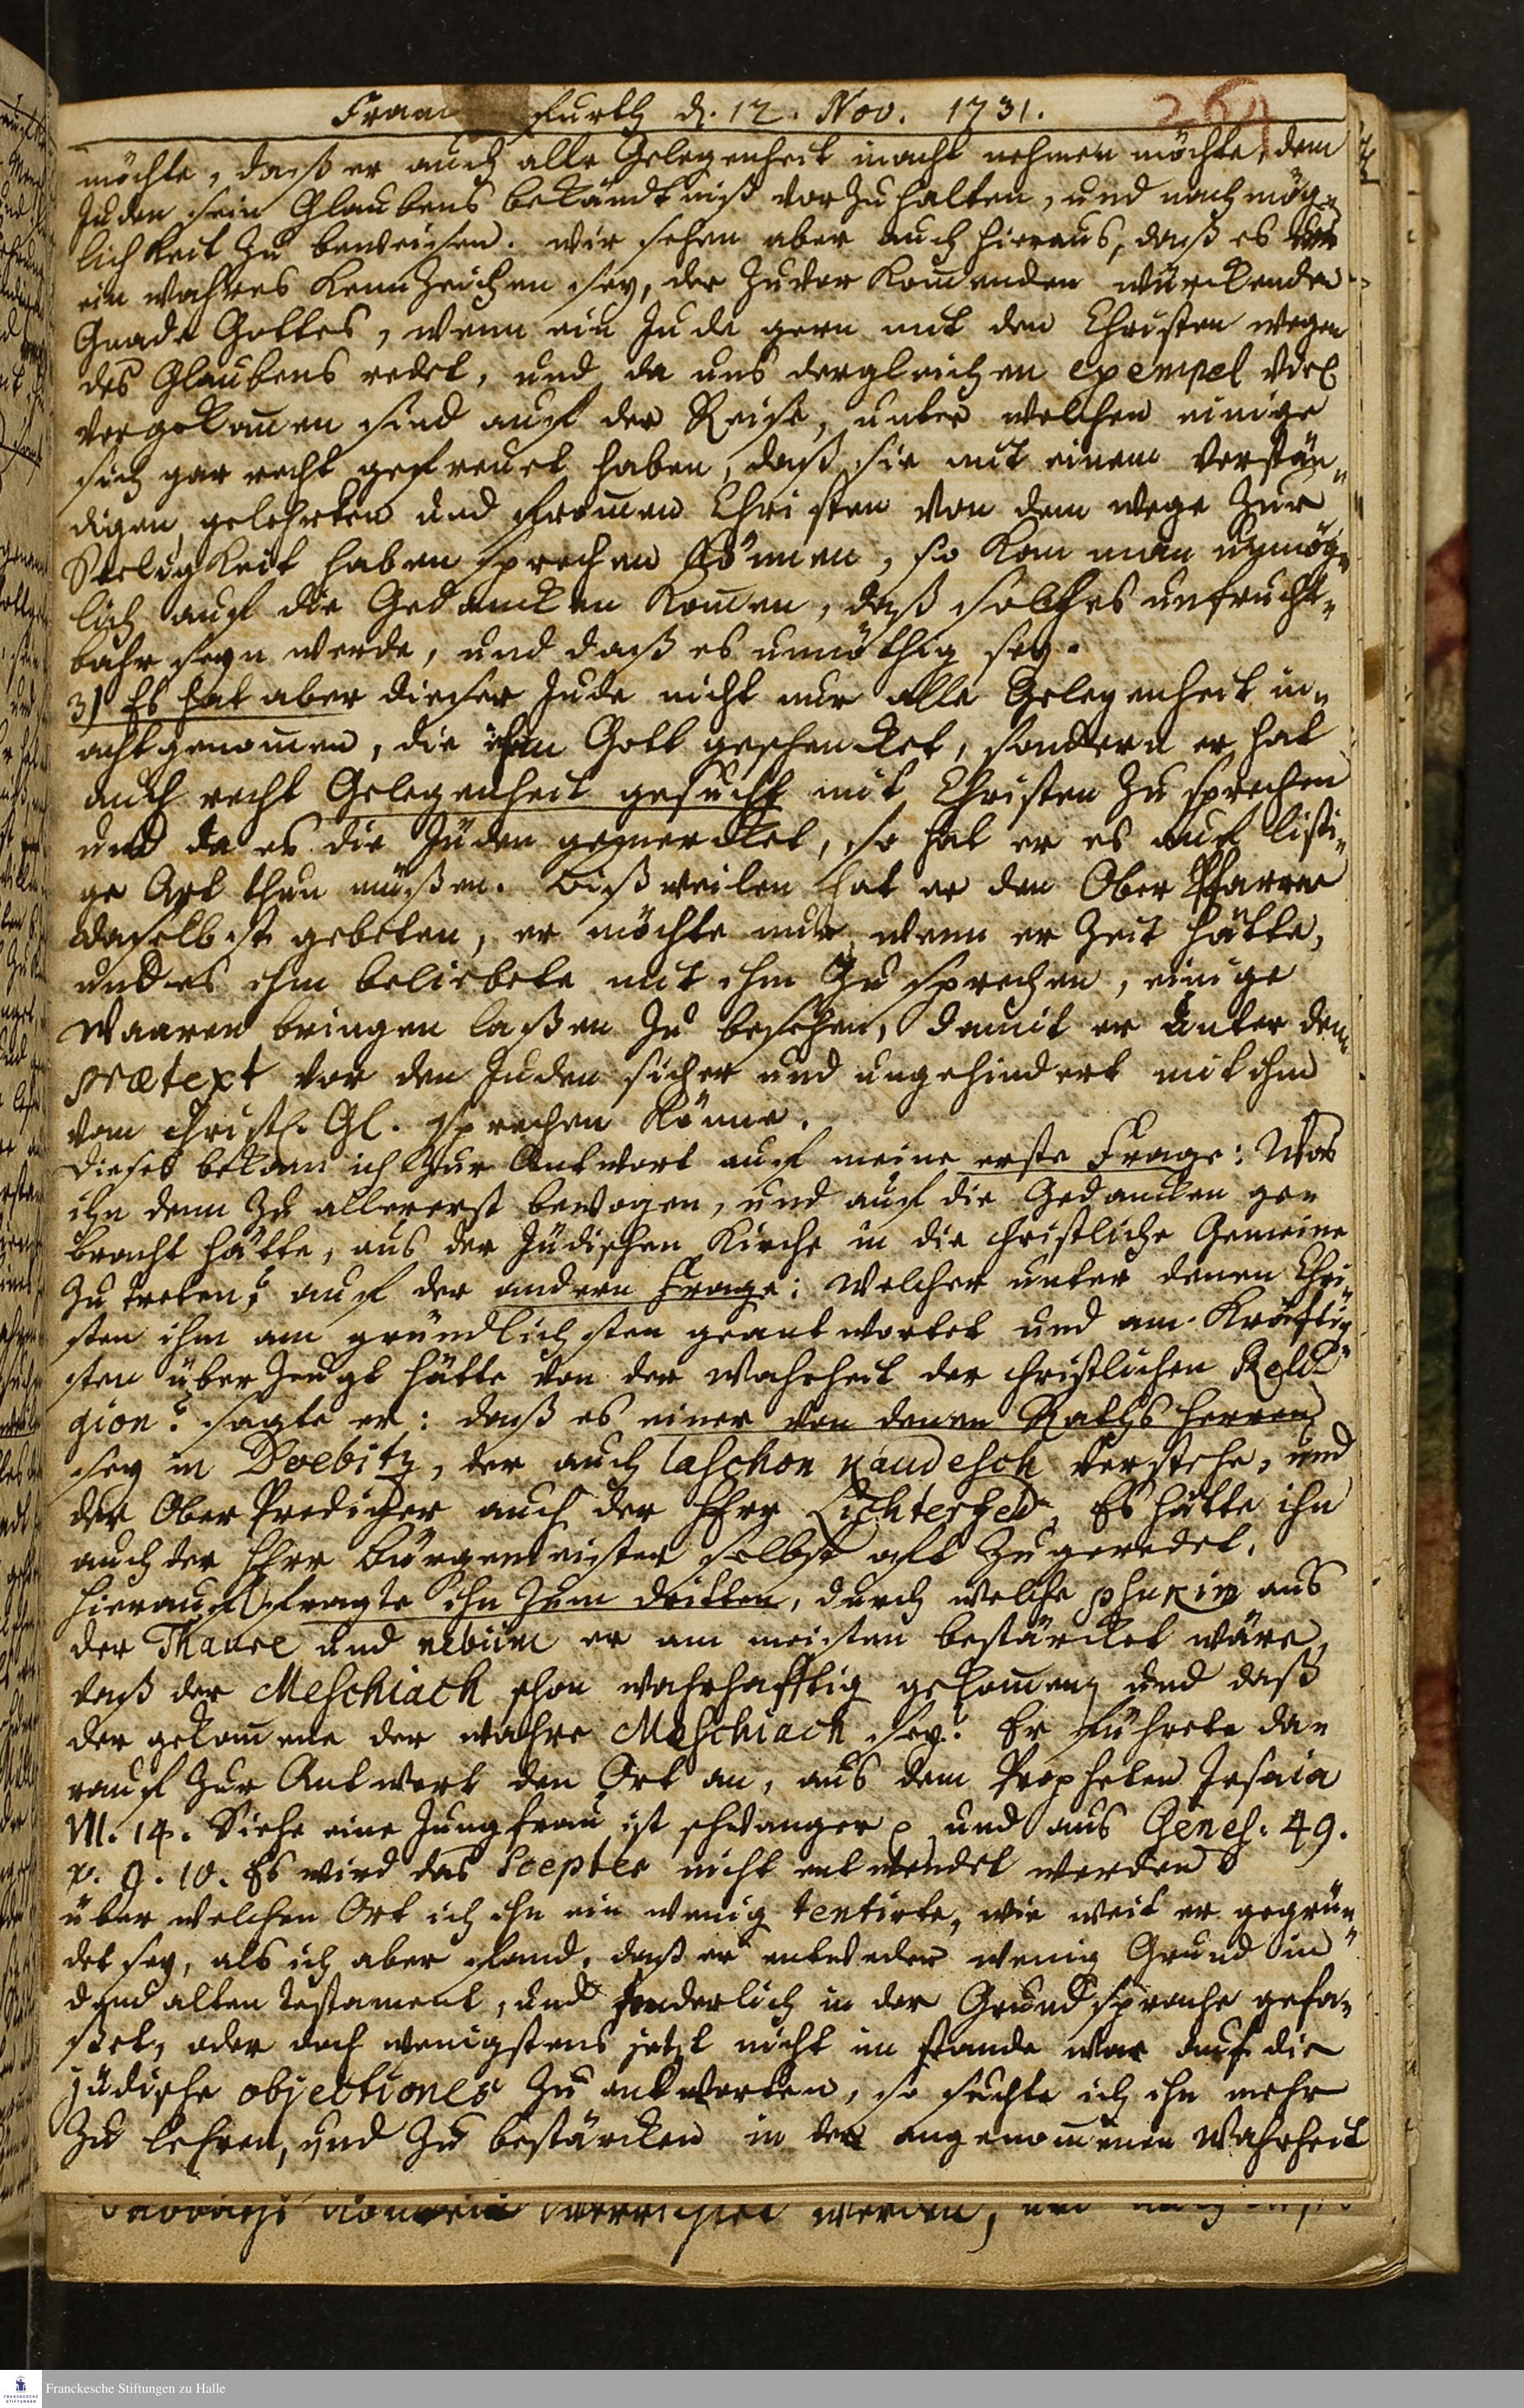 Franckfurth d. 12. Nov. 1731.
264
möchte, daß er auch alle Gelegenheit inacht nehmen möchte, dem
Juden sein Glaubens bekändtniß vorzuhalten, und nach mög-
lichkeit zu beweisen. wir sehen aber auch hieraus, daß es
ein wahres Kennzeichen sey, der zuvor kom̄enden würckenden
Gnade Gottes, wenn ein Jude gern mit den Christen wegen
des Glaubens redet, und da uns dergleichen exempel viel
vorgekom̄en sind auf der Reise, unter welchen einige
sich gar recht gefreuet haben, daß sie mit einem verstän-
digen, gelehrten und from̄en Christen von dem wege zur
Seeligkeit haben sprechen können, so kan man unmög-
lich auf die Gedancken kom̄en, daß solches unfrucht-
bahr seyn werde, und daß es unnöthig sey.
3) Es hat aber dieser Jude nicht nur alle Gelegenheit in-
acht genom̄en, die ihm Gott geschencket, sondern er hat
auch recht Gelegenheit gesucht mit Christen zu sprechen
und da es die Juden gemercket, so hat er es auf listi-
ge Art thun müßen. Bißweilen hat er den Ober Pfarrer
daselbst gebeten, er möchte nur, wenn er Zeit hätte,
und es ihm beliebete mit ihm zu sprechen, einige
Waaren bringen laßen zu besehen, damit er unter dem
prætext vor den Juden sicher und ungehindert mit ihm
vom christl. Gl. sprechen könne.
Dieses bekam ich zur Antwort auf meine erste Frage: Was
ihn denn zu allererst bewogen, und auf die Gedancken ge-
bracht hätte, aus der Jüdischen Kirche in die christliche Gemeine
zu treten; auf der andern Frage: Welcher unter denen Chri-
sten ihm am gründlichsten geantwortet und am kräftig-
sten überzeugt hätte von der Wahrheit der christlichen Reli-
gion? sagte er: daß es einer von denen Raths Herren
sey in Doebitz, der auch laschon kaudesch verstehe, und
der Ober Prediger auch der Herr Lichterfeld, Es hätte ihn
auch der Herr Bürgemeister selbst oft zugeredet.
Hierauf fragte ihn zum dritten, durch welche phukim aus
der Thaure und nebiim er am meisten bestärcket wäre,
daß der Meschiach schon wahrhafftig gekom̄en, und daß
der gekom̄ene der wahre Meschiach sey? Er führete da-
rauf zur Antwort den Ort an, aus dem Propheten Jesaia
VII. 14. Siehe eine Jungfrau ist schwanger und aus Genes: 49.
v. 9. 10. Es wird das Scepter nicht entwendet werden
über welchen Ort ich ihn ein wenig tentirte, wie weit er gegrün-
det sey, als ich aber fand, daß er entweder wenig Grund in
dem alten testament, und sonderlich in der Grund sprache gefa-
ßet, oder doch wenigstens jetzt nicht im stande war auf die
jüdische objectiones zu antworten, so suchte ich ihn mehr
zu lehren, und zu bestärcken in der angenom̄enen Wahrheit
werden,
Franckesche Stiftungen zu Halle